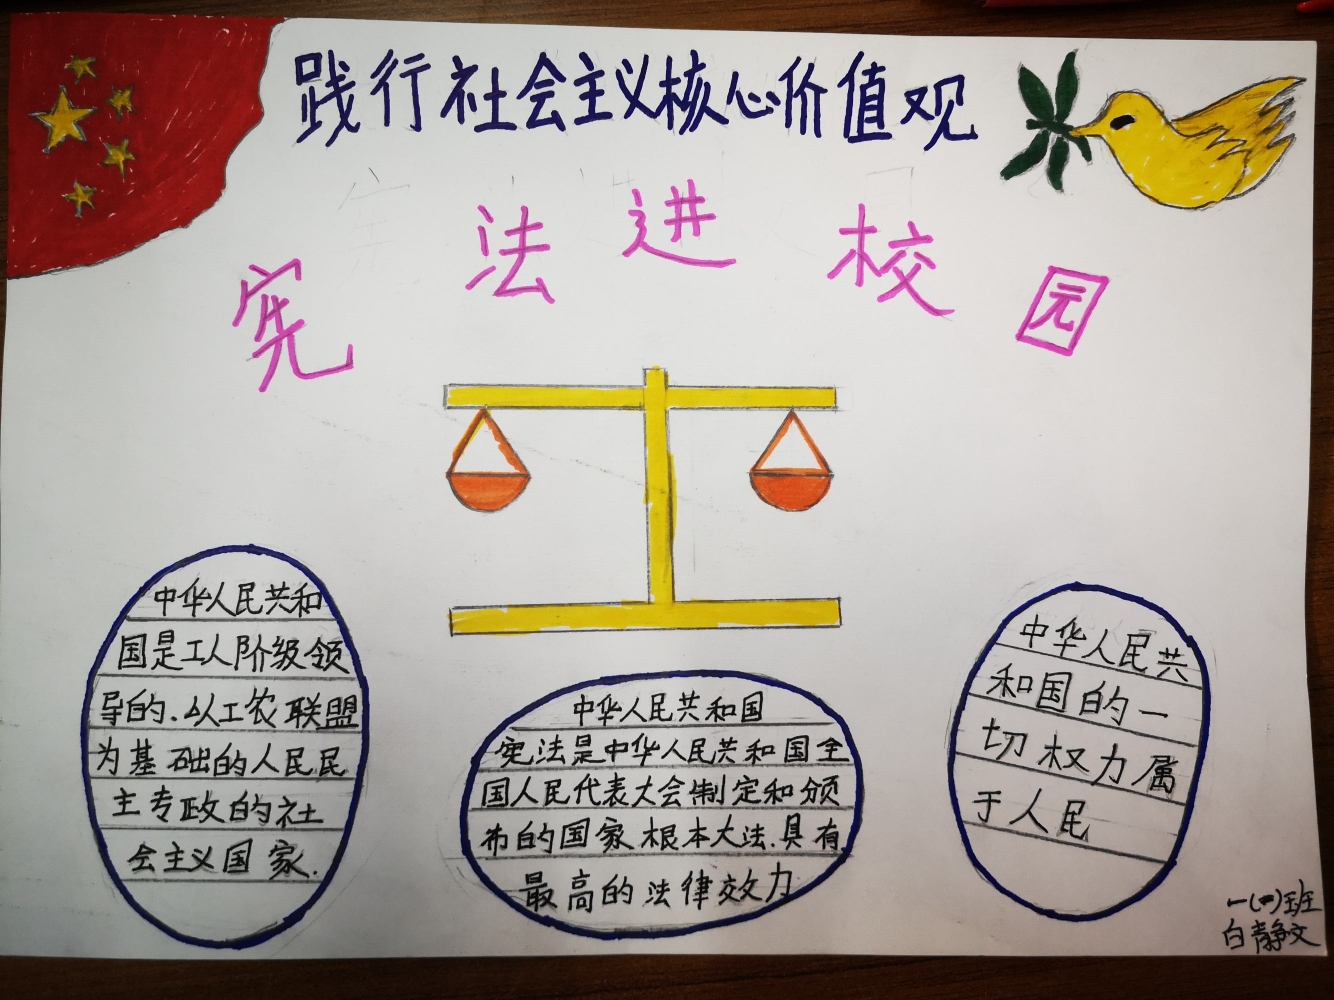 践行社会主义核心价值观
宪法进校园
中华人民共和
国是工人阶级领
导的.以工农联盟
为基础的人民民
主专政的社
会主义国家.
中华人民共和国
宪法是中华人民共和国全
国人民代表大会制定和颁
布的国家根本大法.具有
最高的法律效力
中华人民共
和国的一
切权力属
于人民
一(四)班
白静文